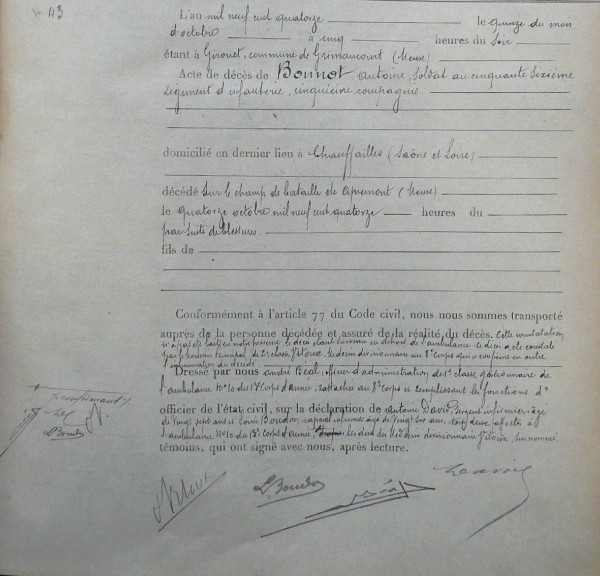 No 43
L'an mil neuf cent quatorze le quinze du mois
d'octobre à cinq heures du soir
étant à Gironet, commune de Grimaucourt (Meuse)
Acte de décès de Bonnot Antoine, soldat au cinquante sixième
régiment d'infanterie, cinquième compagnie
domicilié en dernier lieu à Chauffailles (Saône et Loire)
décédé sur le champ de bataille de Apremont (Meuse)
le quatorze octobre mil neuf cent quatorze heures du
par suite de blessures
fils de
Conformément à l'article 77 du Code civil, nous nous sommes transporté
auprès de la personne décédée et assuré de la réalité du décès. Cette constatation
n'a pas été faite en notre présence le décès étant survenu en dehors de l'ambulance. Le décès a été constaté
par Médecin principal de 2e classe
l'inhumation du décédé
Dressé par nous André Béal, officier d'administration de 1e classe gestionnaire de
l'ambulance No 10 du 13e Corps d'armée, rattachée au 8e Corps et remplissant les fonctions d'
officier de l'état civil, sur la déclaration de Antoine David sergent infirmier âgé
de vingt sept ans et Louis Boudon caporal infirmier âgé de vingt six ans, tous deux affectés à
l'ambulance No 10 du 13e Corps d'armée, les dits du Médecin divisionnaire susnommé
témoins, qui ont signé avec nous, après lecture.
L. Boudon
Béal